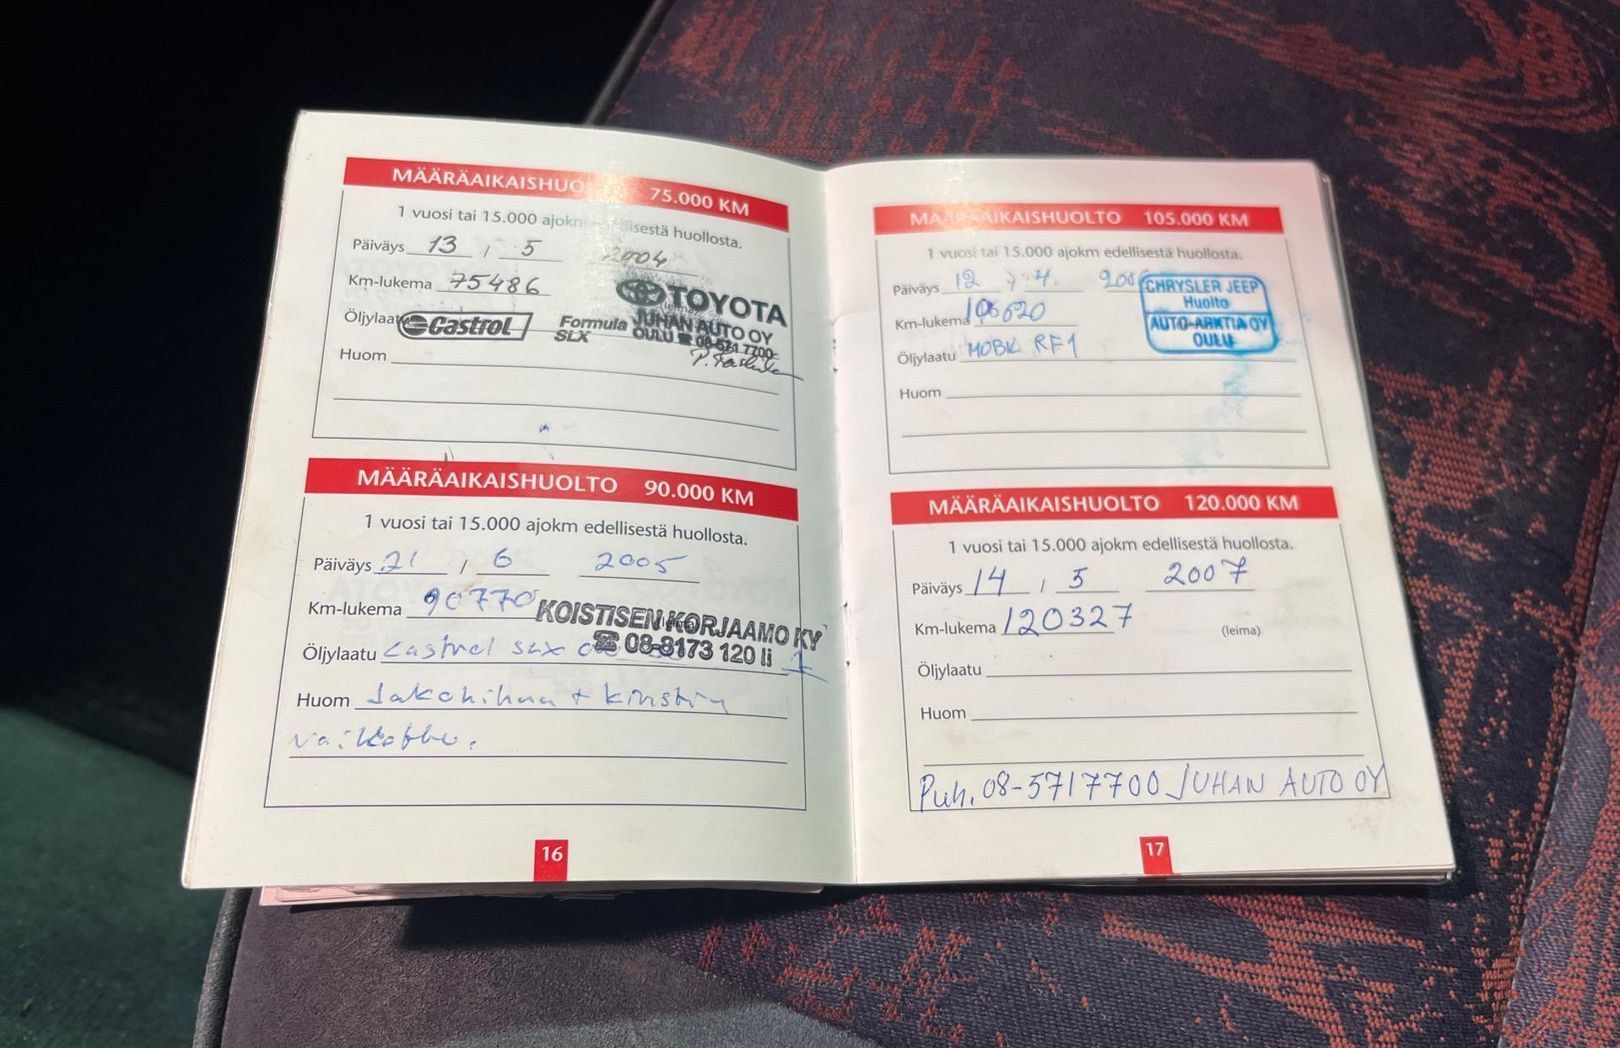 MÄÄRÄAIKAISHUOLTO 75.000 KM
1 vuosi tai 15.000 ajokm edellisestä huollosta.
Päiväys 13 / 5 2004
Km-lukema 75486
TOYOTA
JUHAN AUTO OY
OULU ☎ 08-571 7700
Öljylaatu Castrol Formula SLX
Huom
MÄÄRÄAIKAISHUOLTO 90.000 KM
1 vuosi tai 15.000 ajokm edellisestä huollosta.
Päiväys 21 / 6 2005
Km-lukema 90770
KOISTISEN KORJAAMO KY
☎ 08-8173 120 Ii
Öljylaatu Castrol SLX
Huom Jakohihna + kiristin
vaihdettu.
16
MÄÄRÄAIKAISHUOLTO 105.000 KM
1 vuosi tai 15.000 ajokm edellisestä huollosta.
Päiväys 12 / 4. 2006
Km-lukema 106620
Öljylaatu MOBIL RF1
CHRYSLER JEEP
Huolto
AUTO-ARKTIA OY
OULU
Huom
MÄÄRÄAIKAISHUOLTO 120.000 KM
1 vuosi tai 15.000 ajokm edellisestä huollosta.
Päiväys 14 / 5 2007
Km-lukema 120327
(leima)
Öljylaatu
Huom
Puh. 08-5717700 JUHAN AUTO OY
17